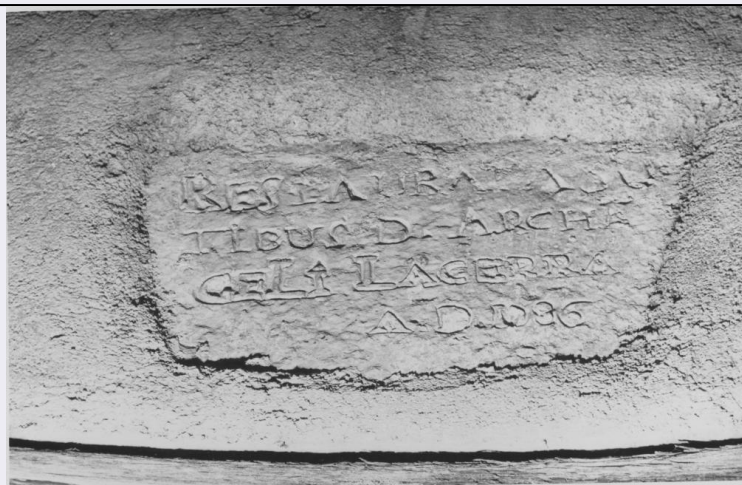 RESTAURA
TIBUS D. ARCHÃ
GELI LAGERRA
A. D. 1086